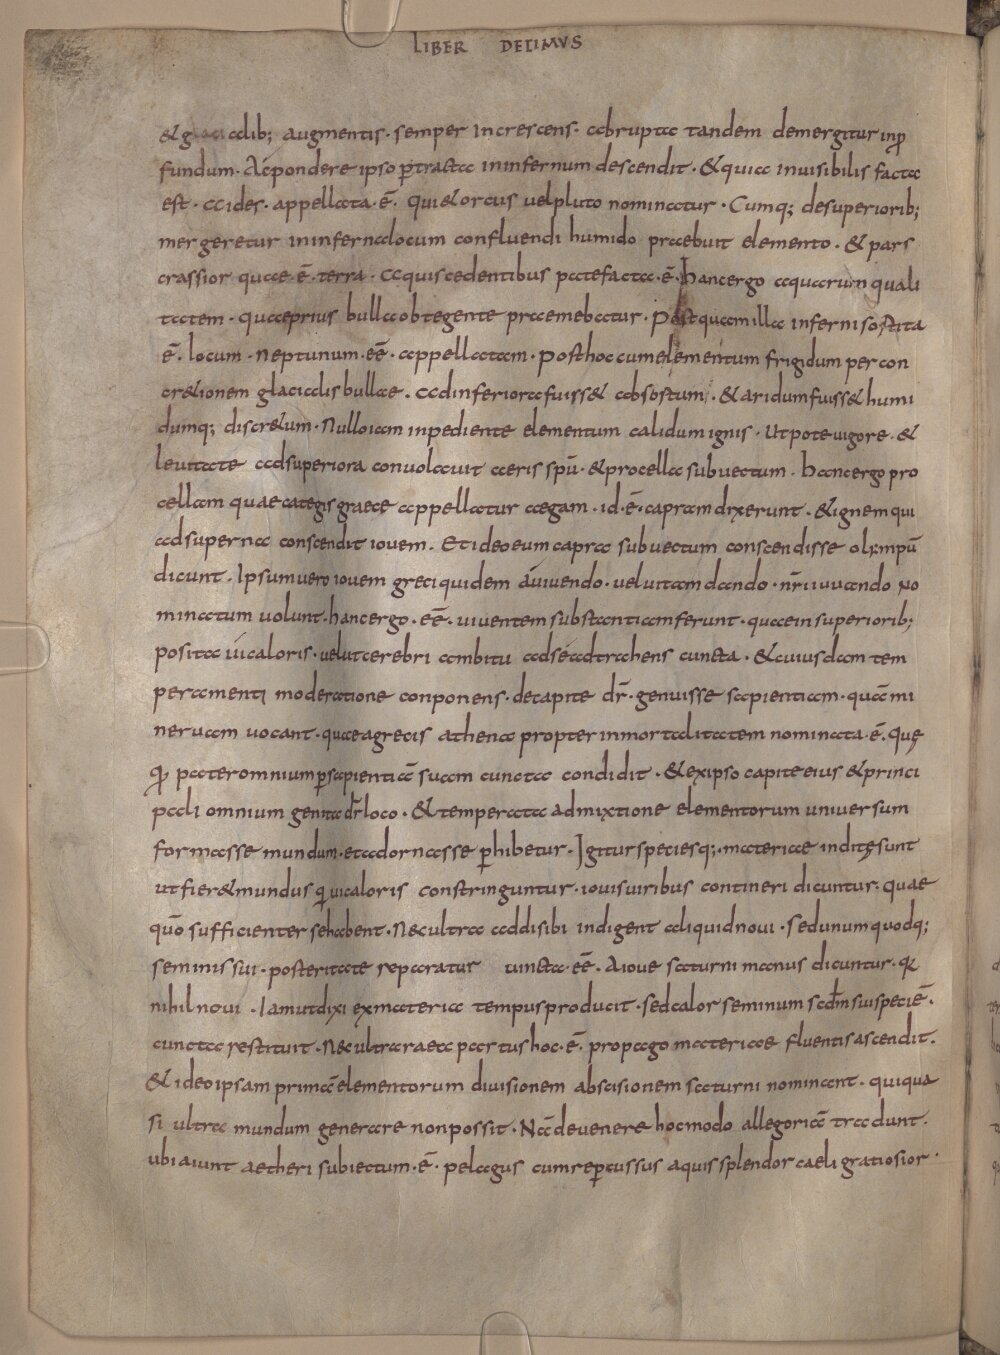 LIBER DECIMUS
& g alib; augmentis · semper increscens · abrupta tandem demergitur inp̱
fundum · Acpondere ipso p̱tracta ininfernum descendit · & quia inuisibilis facta
est · aides · appellata · ē · qui & orcus uelpluto nominatur · Cumq; desuperiorib;
mergeretur ininfernalocum confluendi humido praebuit elemento · & pars
crassior quae · ē · terra · aquiscedentibus patefacta · ē · hancergo aquarum quali
tatem · quaeprius bullaobtegente praemebatur · Postquamilla inferni sortita
ē · locum · neptunum · eē · appellatam · posthoc cumelementum frigidum percon
cr&ionem glacialis bullae · adinferiora fuiss& absostum · & aridumfuiss& humi
dumq; discr&um · Nulloiam inpediente elementum calidum ignis · Utpote uigore · &
leuitate adsuperiora conuolauit aeris spū · & procella subuectum · hancergo pro
cellam quae categis graece appellatur aegam · id · ē · capram dixerunt · & ignem qui
adsuperna conscendit iouem · Et ideo eum capra subuectum conscendisse olympū
dicunt · Ipsumuero iouem greci quidem áuiuendo · uel uitam dando · nr̄i iuuando no
minatum uolunt · hancergo · eē · uiuentem substantiamferunt · quaein superiorib;
posita ui caloris · uelut cerebri ambitu adséadtrahens cuncta · & cuiusdam tem
peramenti moderatione conponens · decapite dr̄ · genuisse sapientiam · quā mi
neruam uocant · quaeagrecis athena propter inmortalitatem nominata · ē · Que
qꝫ pater omnium p̱ sapientiā suam cuncta condidit · & exipso capite eius & princi
pali omnium genita dr̄ loco · & temperata admixtione elementorum uniuersum
formasse mundum · etadornasse p̱hibetur · Igitur speciesq; · materiae inditę sunt
utfier& mundus q ui caloris constringuntur · iouisuiribus contineri dicuntur · quae
quō sufficienter sehabent · Necultra addisibi indigent aliquidnoui · sedunumquodq;
seminis sui · posteritate reparatur cuncta · eē · Aioue saturni manus dicuntur · q
nihil noui · Iamutdixi exmateria tempusproducit · sedcalor seminum scdm̄ sui speciē ·
cuncta restituit · Necultraraeta partus hoc · ē · propago materiae fluentis ascendit ·
& ideo ipsam primā elementorum diuisionem abscisionem saturni nominant · quiqua
si ultra mundum generare nonpossit · Nā deuenere hocmodo allegoriā tradunt ·
ubi aiunt aetheri subiectum · ē · pelagus cumrep̱cussus aquis splendor caeli gratiosior ·